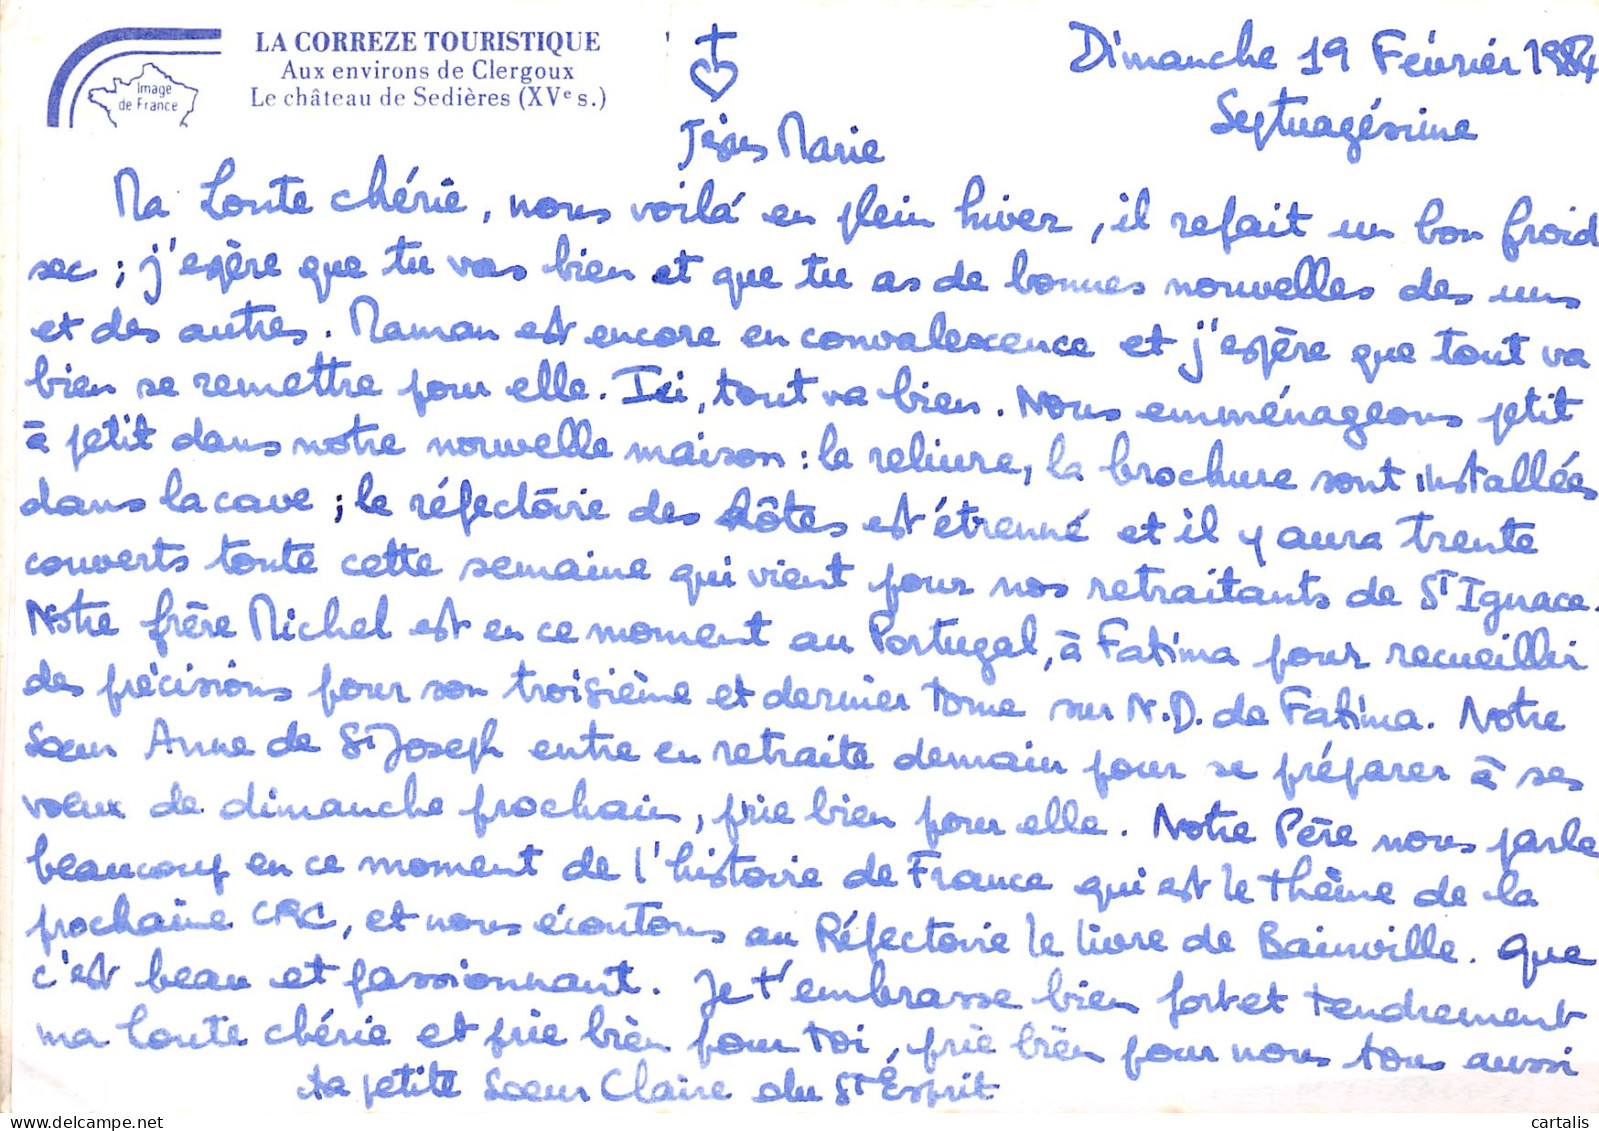 LA CORREZE TOURISTIQUE
Aux environs de Clergoux
Le château de Sedières (XVe s.)
Image
de France
Dimanche 19 Février 1984
Septuagésime
Jésus Marie
Ma Loute chérie, nous voilà en plein hiver, il refait un bon froid
sec ; j'espère que tu vas bien et que tu as de bonnes nouvelles des uns
et des autres. Maman est encore en convalescence et j'espère que tout va
bien se remettre pour elle. Ici, tout va bien. Nous emménageons petit
à petit dans notre nouvelle maison : la reliure, la brochure sont installées
dans la cave ; le réfectoire des hôtes est étrenné et il y aura trente
couverts toute cette semaine qui vient pour nos retraitants de St Ignace.
Notre frère Michel est en ce moment au Portugal, à Fatima pour recueillir
des précisions pour son troisième et dernier tome sur N.D. de Fatima. Notre
Sœur Anne de St Joseph entre en retraite demain pour se préparer à ses
vœux de dimanche prochain, prie bien pour elle. Notre Père nous parle
beaucoup en ce moment de l'histoire de France qui est le thème de la
prochaine CRC, et nous écoutons au Réfectoire le livre de Bainville. Que
c'est beau et passionnant. Je t'embrasse bien fort et tendrement
ma loute chérie et prie bien pour toi, prie bien pour nous tous aussi
ta petite Sœur Claire du St Esprit
cartalis
delcampe.net